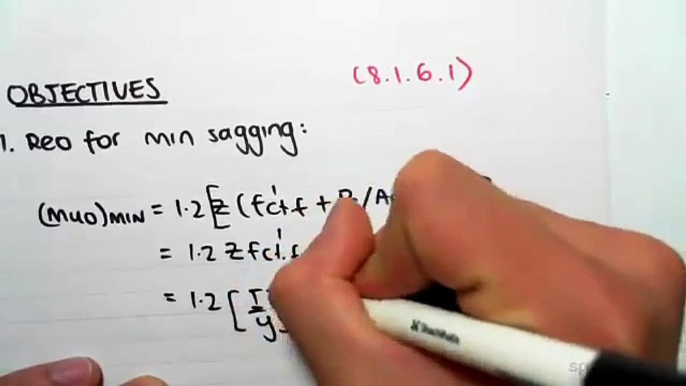 (8.1.6.1)
OBJECTIVES
1. Reo for min sagging:
(Muo)MIN = 1.2[Z(f'ct.f + P /A
= 1.2 Z f'ct.f
= 1.2 [I/y